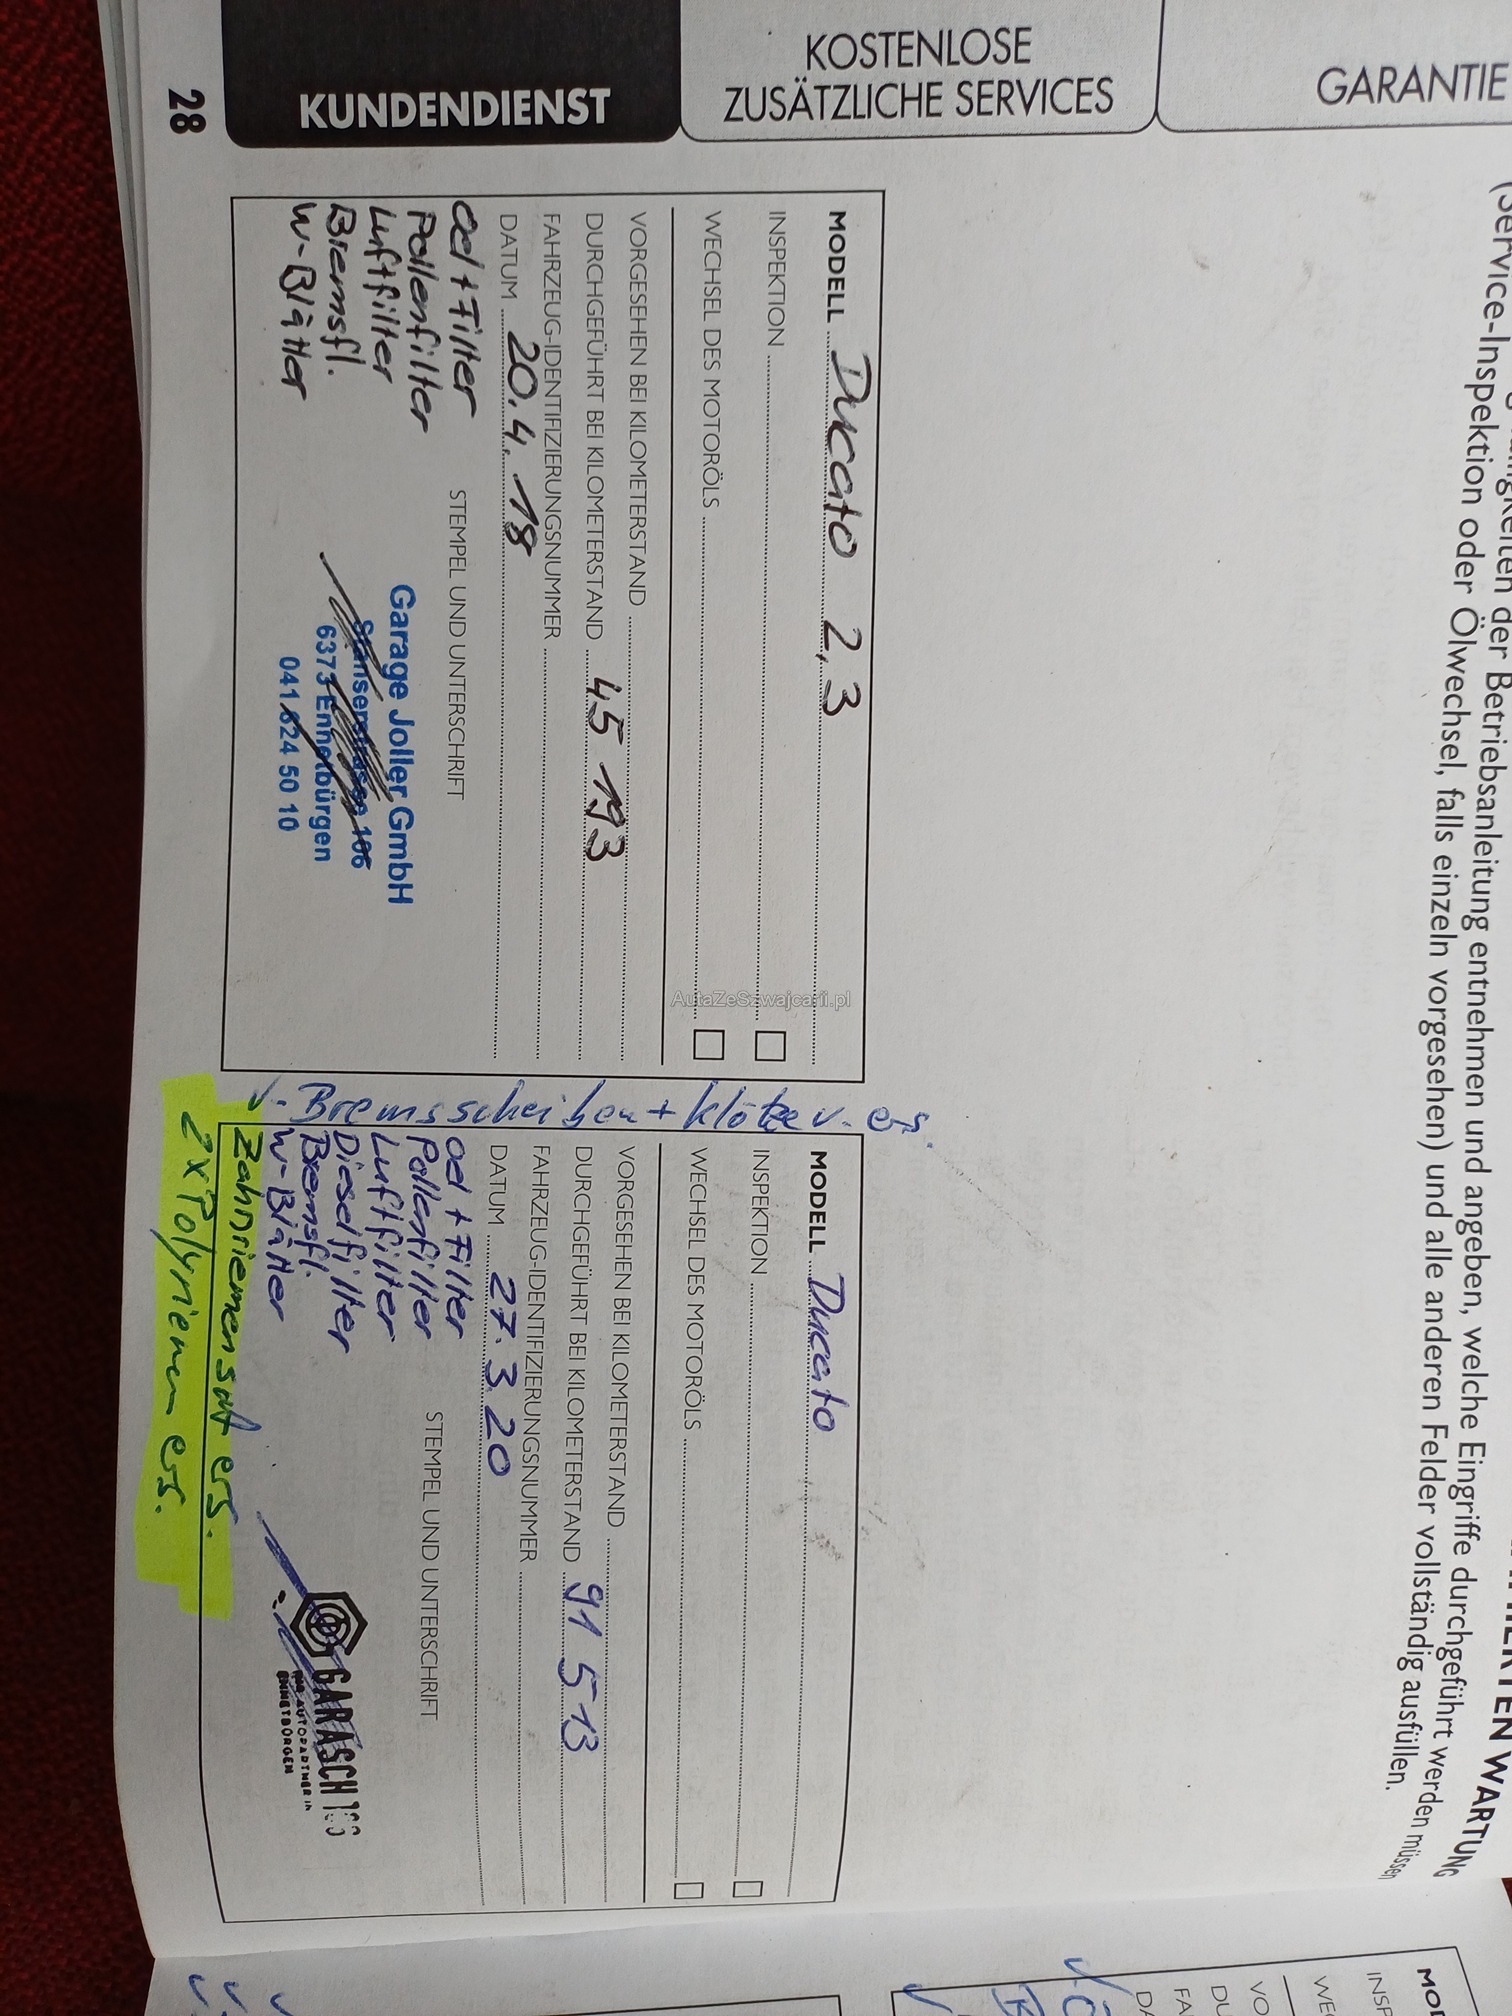 GARANTIE
KOSTENLOSE
ZUSÄTZLICHE SERVICES
KUNDENDIENST
28
WARTUNG
der Betriebsanleitung entnehmen und angeben, welche Eingriffe durchgeführt werden müssen
(Service-Inspektion oder Ölwechsel, falls einzeln vorgesehen) und alle anderen Felder vollständig ausfüllen.
MODELL Ducato 2,3
INSPEKTION
WECHSEL DES MOTORÖLS
VORGESEHEN BEI KILOMETERSTAND
DURCHGEFÜHRT BEI KILOMETERSTAND 45 193
FAHRZEUG-IDENTIFIZIERUNGSNUMMER
DATUM 20.4.18
STEMPEL UND UNTERSCHRIFT
Oel + Filter
Pollenfilter
Luftfilter
Bremsfl.
W-Blätter
Garage Joller GmbH
6373 Ennetbürgen
041 624 50 10
AutaZeSzwajcarii.pl
✓-Bremsscheiben + klötze v. ers.
MODELL Ducato
INSPEKTION
WECHSEL DES MOTORÖLS
VORGESEHEN BEI KILOMETERSTAND
DURCHGEFÜHRT BEI KILOMETERSTAND 91 513
FAHRZEUG-IDENTIFIZIERUNGSNUMMER
DATUM 27.3.20
STEMPEL UND UNTERSCHRIFT
Oel + Filter
Pollenfilter
Luftfilter
Dieselfilter
Bremsfl.
W-Blätter
Zahnriemensat ers.
2x Polyriemen ers.
GARASCH
AUTOPARTNER IN
ENNETBÜRGEN